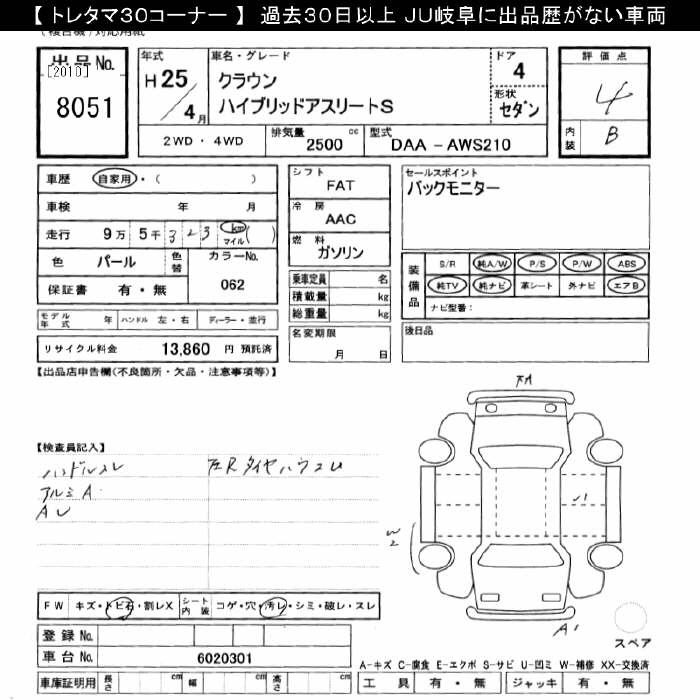 【 トレタマ30コーナー 】 過去30日以上 JU岐阜に出品歴がない車両
出品No.
[2010]
8051
年式
H 25/4 月
車名・グレード
クラウン
ハイブリッドアスリートS
ドア
4
形状
セダン
評価点
4
内装
B
2WD ・ 4WD
排気量
2500 cc
型式
DAA - AWS210
車歴 自家用・( )
車検 年 月
走行 9万 5千 3 2 3 km マイル ( )
色 パール 色替 カラーNo.
062
保証書 有・無
モデル年式 年 ハンドル 左・右 ディーラー・並行
リサイクル料金 13,860 円 預託済
シフト
FAT
冷房
AAC
燃料
ガソリン
乗車定員 名
積載量 kg
総重量 kg
名変期限
月 日
セールスポイント
バックモニター
装備品
S/R 純A/W P/S P/W ABS
純TV 純ナビ 革シート 外ナビ エアB
ナビ型番：
後日品
【出品店申告欄(不良箇所・欠品・注意事項等)】
【検査員記入】
ハンドルスレ
アルミA
AU
W2
A1
FW キズ・トビ石・割レX シート内装 コゲ・穴・汚レ・シミ・破レ・スレ
登録No.
車台No. 6020301
車庫証明用 長さ cm 幅 cm 高さ cm
スペア
A-キズ C-腐食 E-エクボ S-サビ U-凹ミ W-補修 XX-交換済
工具 有・無 ジャッキ 有・無